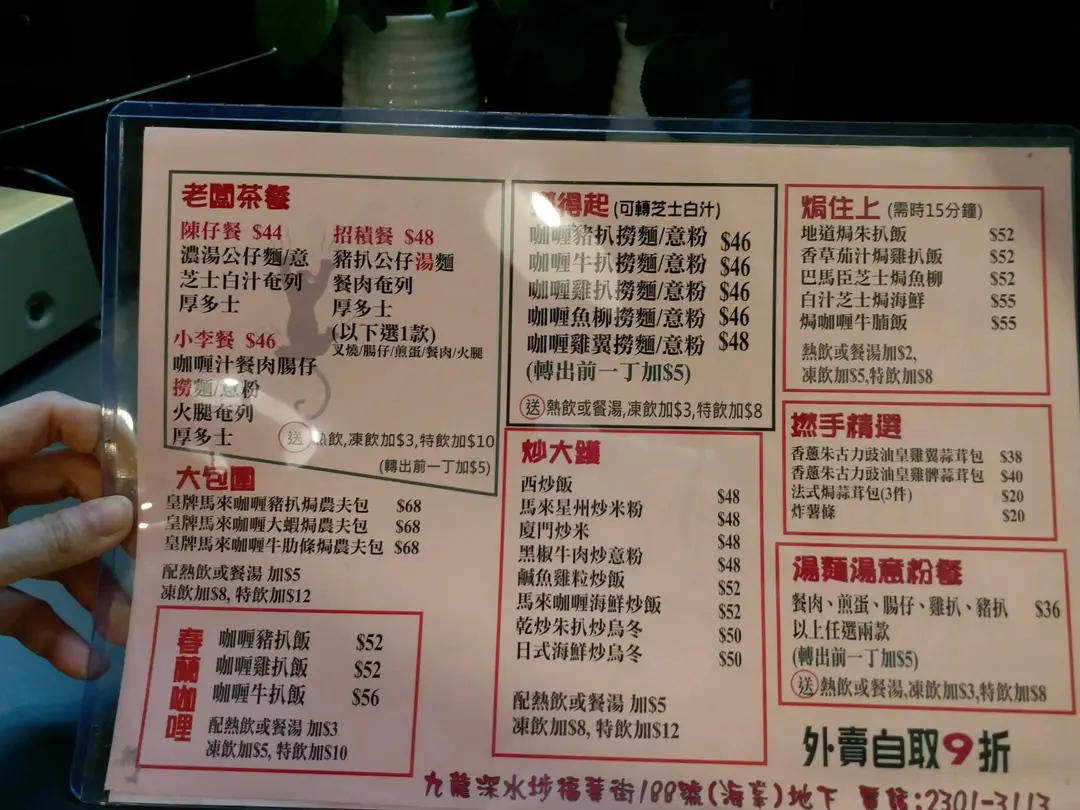 老闆茶餐
陳仔餐 $44
濃湯公仔麵/意
芝士白汁奄列
厚多士
小李餐 $46
咖喱汁餐肉腸仔
撈麵/意粉
火腿奄列
厚多士
招積餐 $48
豬扒公仔湯麵
餐肉奄列
厚多士
(以下選1款)
叉燒/腸仔/煎蛋/餐肉/火腿
送 熱飲,凍飲加$3,特飲加$10
(轉出前一丁加$5)
大包圍
皇牌馬來咖喱豬扒焗農夫包 $68
皇牌馬來咖喱大蝦焗農夫包 $68
皇牌馬來咖喱牛肋條焗農夫包 $68
配熱飲或餐湯 加$5
凍飲加$8, 特飲加$12
春蘭咖哩
咖喱豬扒飯 $52
咖喱雞扒飯 $52
咖喱牛扒飯 $56
配熱飲或餐湯 加$3
凍飲加$5, 特飲加$10
得起 (可轉芝士白汁)
咖喱豬扒撈麵/意粉 $46
咖喱牛扒撈麵/意粉 $46
咖喱雞扒撈麵/意粉 $46
咖喱魚柳撈麵/意粉 $46
咖喱雞翼撈麵/意粉 $48
(轉出前一丁加$5)
送 熱飲或餐湯,凍飲加$3,特飲加$8
炒大鑊
西炒飯 $48
馬來星州炒米粉 $48
廈門炒米 $48
黑椒牛肉炒意粉 $48
鹹魚雞粒炒飯 $52
馬來咖喱海鮮炒飯 $52
乾炒朱扒炒烏冬 $50
日式海鮮炒烏冬 $50
配熱飲或餐湯 加$5
凍飲加$8, 特飲加$12
焗住上 (需時15分鐘)
地道焗朱扒飯 $52
香草茄汁焗雞扒飯 $52
巴馬臣芝士焗魚柳 $52
白汁芝士焗海鮮 $55
焗咖喱牛腩飯 $55
熱飲或餐湯加$2,
凍飲加$5,特飲加$8
撚手精選
香蔥朱古力豉油皇雞翼蒜茸包 $38
香蔥朱古力豉油皇雞髀蒜茸包 $40
法式焗蒜茸包(3件) $20
炸薯條 $20
湯麵湯意粉餐
餐肉、煎蛋、腸仔、雞扒、豬扒 $36
以上任選兩款
(轉出前一丁加$5)
送 熱飲或餐湯,凍飲加$3,特飲加$8
外賣自取9折
九龍深水埗福華街188號(海峯)地下 電話:2301-3113